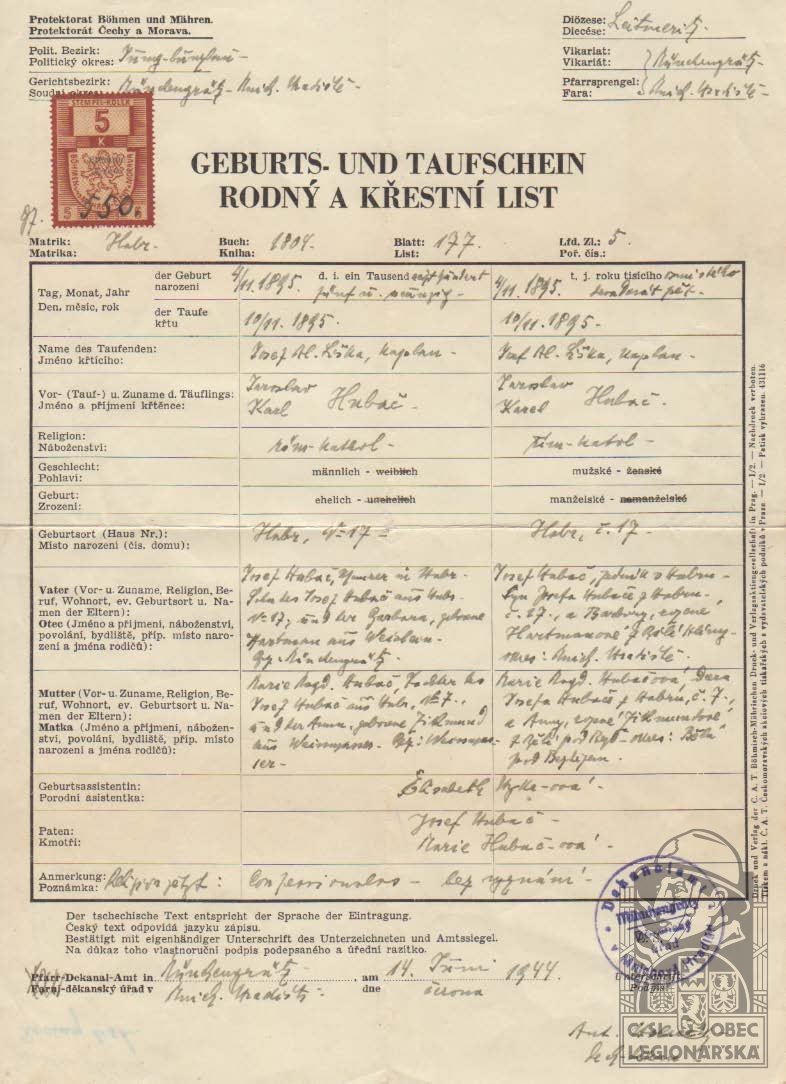 Protektorat Böhmen und Mähren.
Protektorát Čechy a Morava.
Polit. Bezirk:
Politický okres: Jung-bunzlau
Gerichtsbezirk:
Soudní okres: Münchengrätz - Mnich. Hradiště -
Diözese:
Diecése: Leitmeritz
Vikariat:
Vikariát: Münchengrätz -
Pfarrsprengel:
Fara: Mnich. Hradiště -
STEMPEL-KOLEK
5
K
BÖHMEN MORAVA
5 550
GEBURTS- UND TAUFSCHEIN
RODNÝ A KŘESTNÍ LIST
Matrik:
Matrika: Habr.
Buch:
Kniha: 1804.
Blatt:
List: 177.
Lfd. Zl.:
Poř. čís.: 5.
Tag, Monat, Jahr
Den, měsíc, rok
der Geburt
narození
4/11. 1895. d. i. ein Tausend achthundert
fünf u. neunzig -
4/11. 1895. t. j. roku tisícího osmistého
devadesát pět -
der Taufe
křtu
10/11. 1895.
10/11. 1895.
Name des Taufenden:
Jméno křtícího:
Josef Al. Liška, Kaplan -
Josef Al. Liška, kaplan -
Vor- (Tauf-) u. Zuname d. Täuflings:
Jméno a příjmení křtěnce:
Jaroslav
Karl Hubač -
Jaroslav
Karel Hubač -
Religion:
Náboženství:
röm-kathol -
řím-katol -
Geschlecht:
Pohlaví:
männlich - weiblich
mužské - ženské
Geburt:
Zrození:
ehelich - unehelich
manželské - nemanželské
Geburtsort (Haus Nr.):
Místo narození (čís. domu):
Habr, № 17 -
Habr, č. 17 -
Vater (Vor- u. Zuname, Religion, Be-
ruf, Wohnort, ev. Geburtsort u. Na-
men der Eltern):
Otec (Jméno a příjmení, náboženství,
povolání, bydliště, příp. místo naro-
zení a jména rodičů):
Josef Hubač, in Habr -
Sohn des Josef Hubač aus Habr
№ 17, und der Barbara, geborene
Hartmann aus Weislein -
Bez. Münchengrätz -
Josef Hubač, v Habru -
Syn Josefa Hubače z Habru
č. 17, a Barbory, rozené
Hartmanové z Bělé
okres: Mnich. Hradiště -
Mutter (Vor- u. Zuname, Religion, Be-
ruf, Wohnort, ev. Geburtsort u. Na-
men der Eltern):
Matka (Jméno a příjmení, nábožen-
ství, povolání, bydliště, příp. místo
narození a jména rodičů):
Marie Magd. Hubač, Tochter des
Josef Hubač aus Habr, № 7.,
und der Anna, geborene Zikmund
aus Weisswasser - Bez: Weisswas-
ser -
Marie Magd. Hubačová, Dcera
Josefa Hubače z Habru, č. 7.,
a Anny, rozené Zikmundové
z Bělé pod - okres: Bělá
pod Bezdězem.
Geburtsassistentin:
Porodní asistentka:
Elisabeth -ová -
Paten:
Kmotři:
Josef Hubač -
Marie Hubač-ová -
Anmerkung:
Poznámka: Religion jetzt: Confessionslos - bez vyznání -
Druck und Verlag der C. A. T. Böhmisch-Mährischen Druck- und Verlagsaktiengesellschaft in Prag. — I/2. — Nachdruck verboten.
Tiskem a nákl. Č. A. T. Českomoravských akciových tiskařských a vydavatelských podniků v Praze. — I/2 — Patisk vyhrazen. 431116
Der tschechische Text entspricht der Sprache der Eintragung.
Český text odpovídá jazyku zápisu.
Bestätigt mit eigenhändiger Unterschrift des Unterzeichneten und Amtssiegel.
Na důkaz toho vlastnoruční podpis podepsaného a úřední razítko.
Pfarr-Dekanal-Amt in Münchengrätz -, am 14. Juni 1944
Farní-děkanský úřad v Mnich. Hradišti - dne června
Dekanalamt
Münchengrätz
Děkanský
úřad
Mnichovo Hradiště
Unterschrift:
Podpis:
Ant.
rodný list
ČSL. OBEC
LEGIONÁŘSKÁ